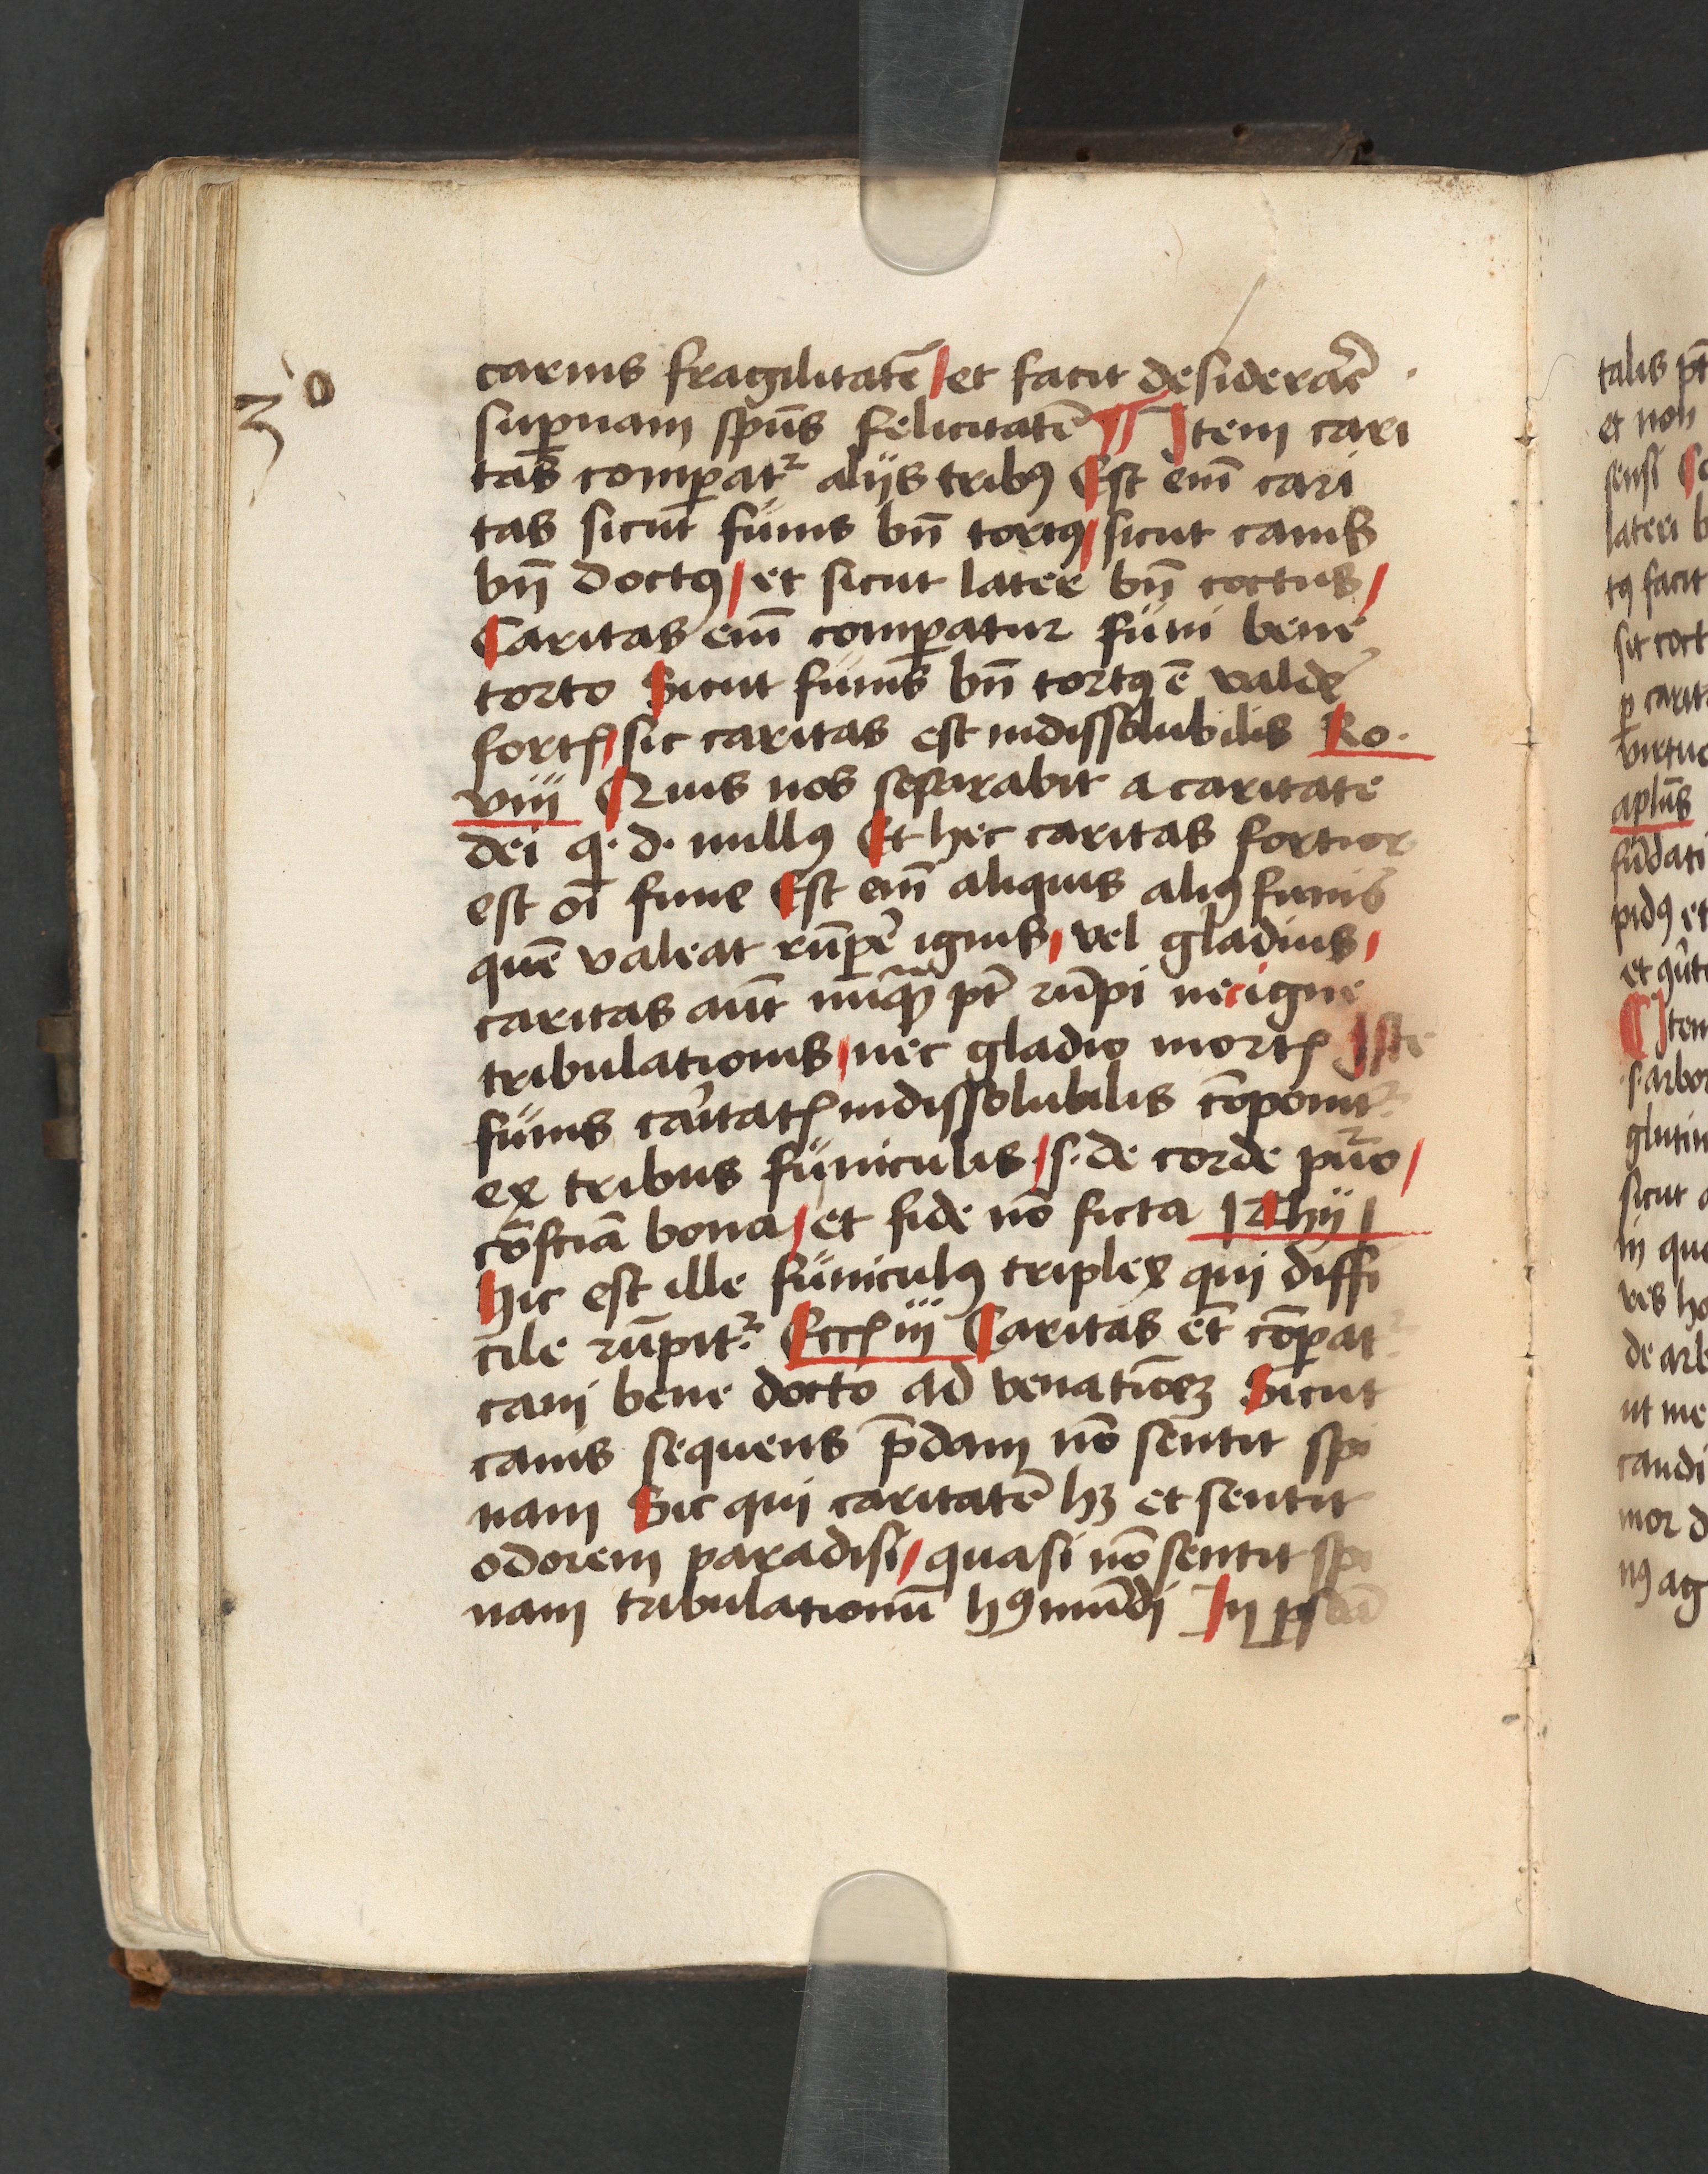 3o
carnis fragilitatē / et facit desiderar̄e
sup̱nam sp̄us felicitatē ¶ Item cari
tas comp̱atꝛ alijs tribꝰ Est em̄ cari
tas sicut funis bn̄ tortꝰ / sicut canis
bn̄ doctꝰ / et sicut later bn̄ coctus /
Caritas em̄ comp̱atur funi bene
torto Sicut funis bn̄ tortꝰ ē valde
fortꝭ / sic caritas est indissolubilis Ro.
viij Quis nos separabit a caritate
dei q. d. nullꝰ Et hec caritas fortior
est oī fune Est em̄ aliquis aliꝰ funis
quē valeat rūp̱e ignis / vel gladius /
caritas aūt nūqᷓ pt̄ rūpi nec igne
tribulationis / nec gladio mortꝭ Iste
funis caritatꝭ indissolubilis cōponitꝛ
ex tribus funiculis / s. de corde puro /
cōsciā bona / et fide nō ficta 1 Thij 1
Hic est ille funiculꝰ triplex qui diffi
cile rūpitꝛ. Eccꝭ iiij Caritas et̄ cōpatꝛ
cani bene docto ad venatiōeꝫ Sicut
canis sequens p̄dam nō sentit spi
nam Sic qui caritatē hꝫ et sentit
odorem paradisi / quasi nō sentit spi
nam tribulationū hꝰ mūdi In
talis pt̄
et non
sensi
lateri b
tꝰ facit
sit coct
p̱ carit
virtuo
aplūs
fūdati
pidꝰ et
¶ Item
s. arbor
glutin
sicut a
in quo
de arb
ut me
candi
mor d
nꝰ ag